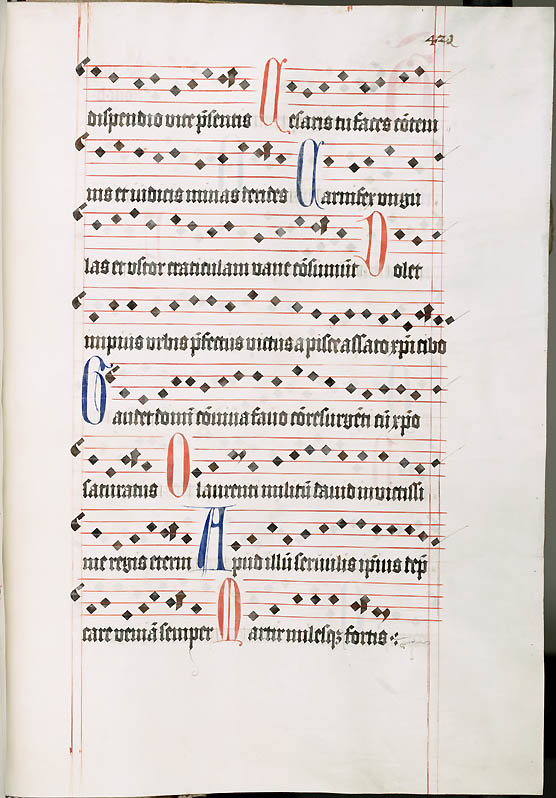 422
dispendio vite p̄sentis Cesaris tu fasces cōtem
nis et iudicis minas derides Carnifex ungu
las et ustor craticulam vane cōsumūt Dolet
impius urbis p̄fectus victus a pisce assato xp̄i cibo
Gaudet domī cōviva favo cōresurgēti cū xp̄o
saturatus O laurenti militū david invictissi
me regis eterni Apud illū servulis ip̄ius dep̄
care veniā semper Martir milesqꝫ fortis